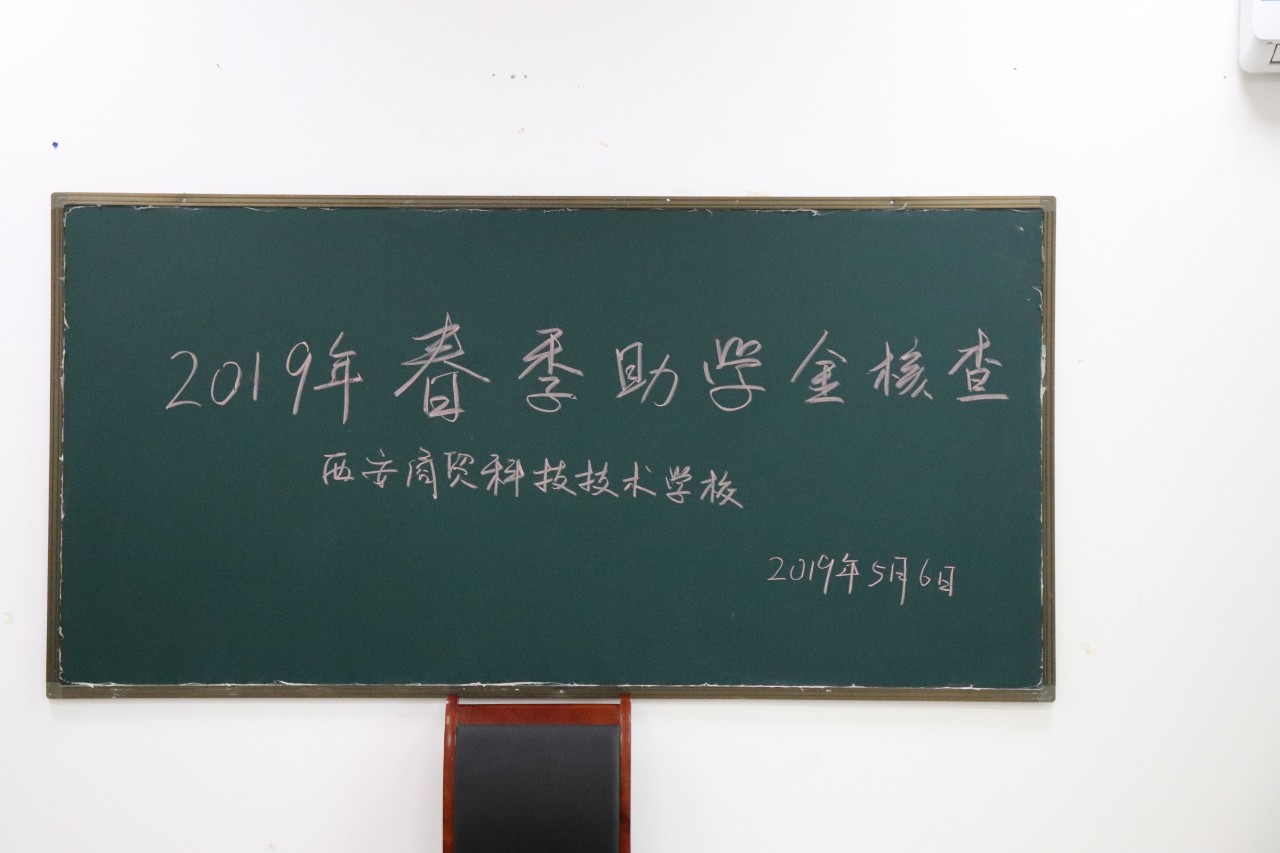 2019年春季助学金核查
西安商贸科技技术学校
2019年5月6日